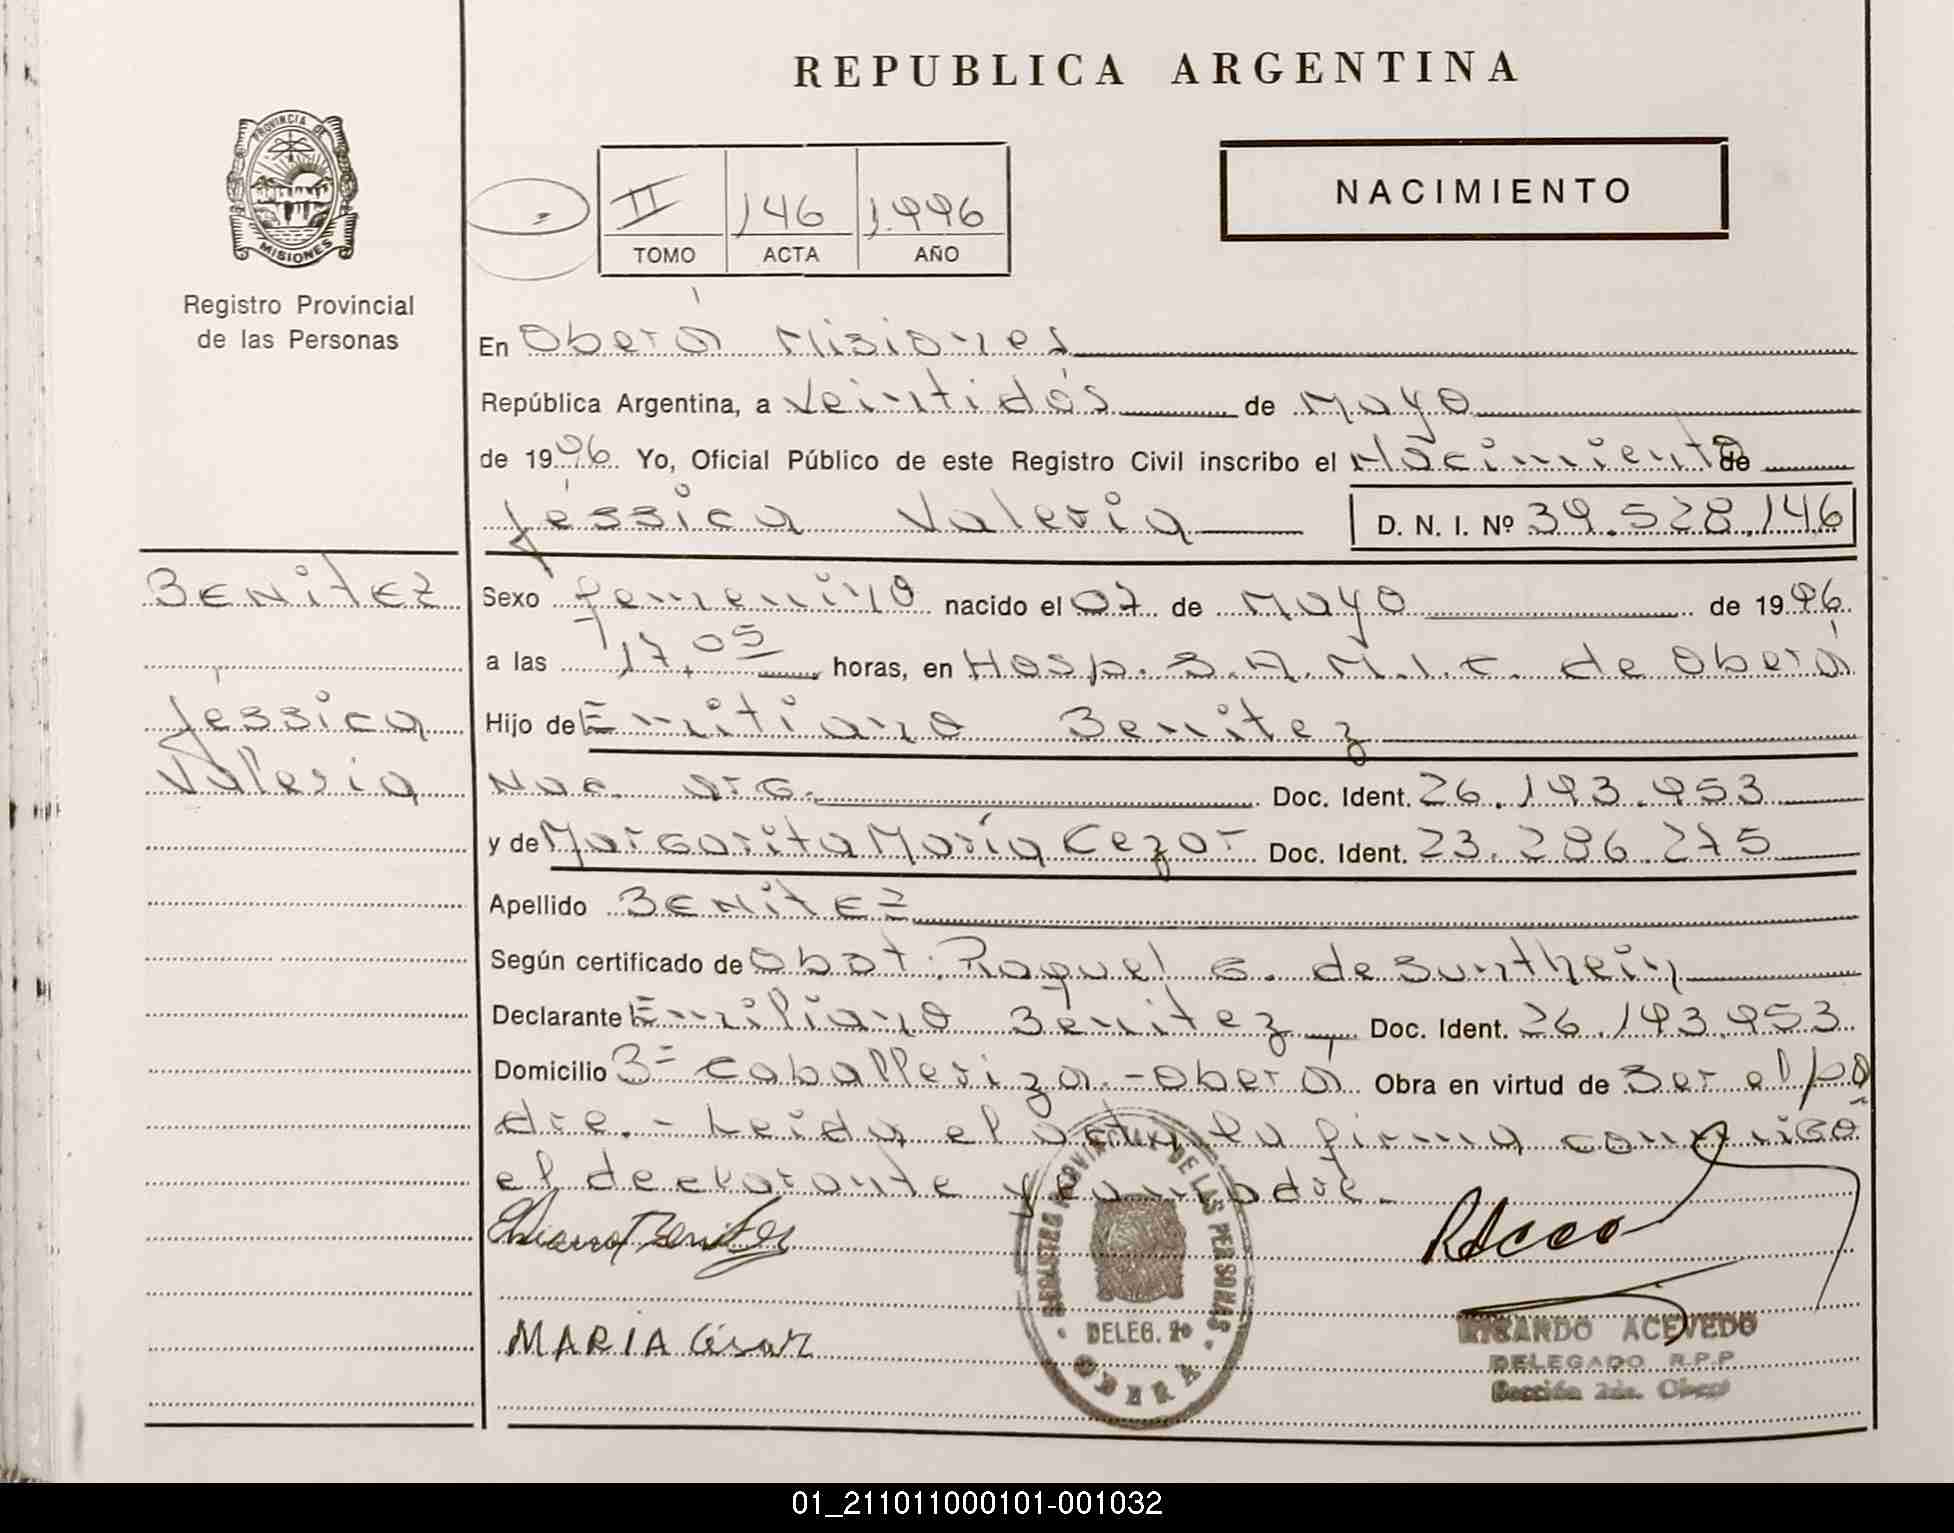 REPUBLICA ARGENTINA
PROVINCIA DE
MISIONES
Registro Provincial
de las Personas
II 146 1.996
TOMO ACTA AÑO
NACIMIENTO
En Oberá Misiones
República Argentina, a Veintidós de Mayo
de 1996 Yo, Oficial Público de este Registro Civil inscribo el Nacimiento de
Jéssica Valeria D. N. I. Nº 39.528.146
BENITEZ
Jéssica
Valeria
Sexo femenino nacido el 07 de Mayo de 1996
a las 17,05 horas, en Hosp. S.A.M.I.C. de Oberá
Hijo de Emitiano Benitez
Nac. Arg. Doc. Ident. 26.193.953
y de Margarita María Cezar Doc. Ident. 23.286.275
Apellido BENITEZ
Según certificado de Obst. Raquel G. de
Declarante Emiliano Benitez Doc. Ident. 26.193.953
Domicilio 3= Caballeriza.-Oberá Obra en virtud de Ser el pa
dre.- Leida el acta la firma conmigo
el declarante y su madre.-
Benitez
MARIA César
REGISTRO PROVINCIAL DE LAS PERSONAS
DELEG. 2º
OBERA
RICARDO ACEVEDO
DELEGADO R.P.P
Sección 2da. Oberá
01_211011000101-001032